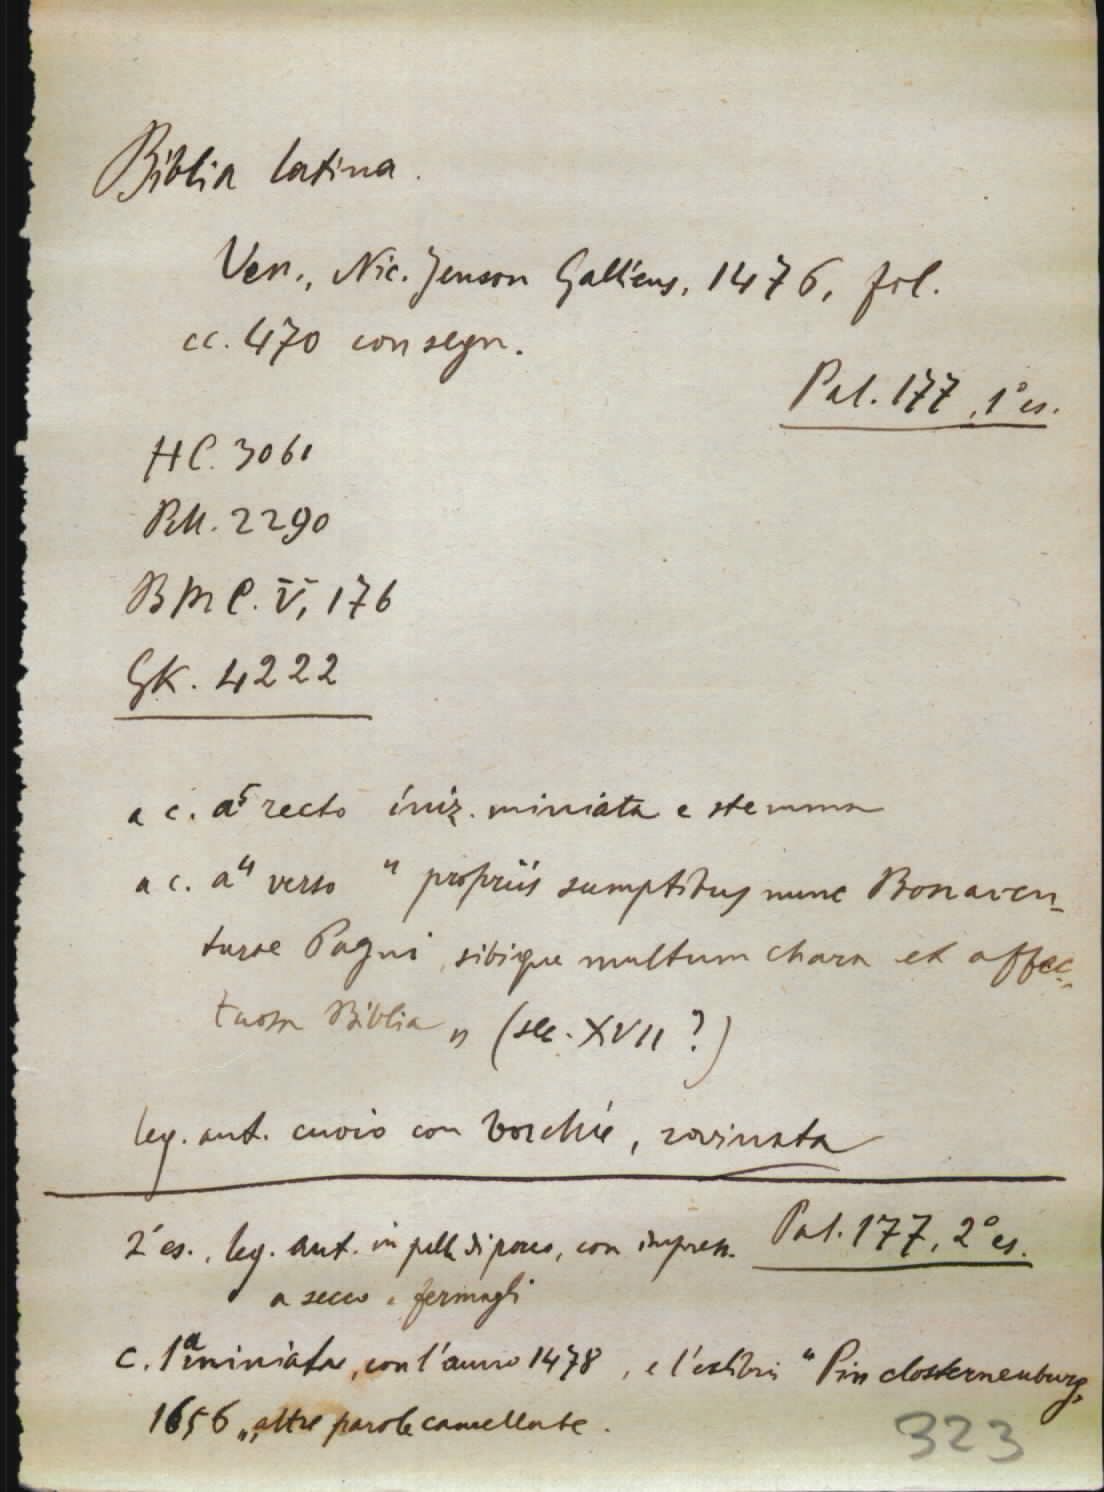 Biblia latina.
Ven., Nic. Jenson Gallicus, 1476, fol.
cc. 470 con segn.
Pal. 177, 1° es.
HC. 3061
RM. 2290
BMC. V, 176
GK. 4222
a c. a5 recto iniz. miniata e stemma
a c. a4 verso " propriis sumptibus nunc Bonaven-
turae Pagni, sibique multum chara et affec-
tuosa Biblia „ (sec. XVII ?)
leg. ant. cuoio con borchie, rovinata
2° es., leg. ant. in pelle di porco, con impress.
Pal. 177, 2° es.
a secco e fermagli
c. 1a miniata, con l'anno 1478, e l'exlibris "
closterneuburg,
1656 „, altre parole cancellate.
323